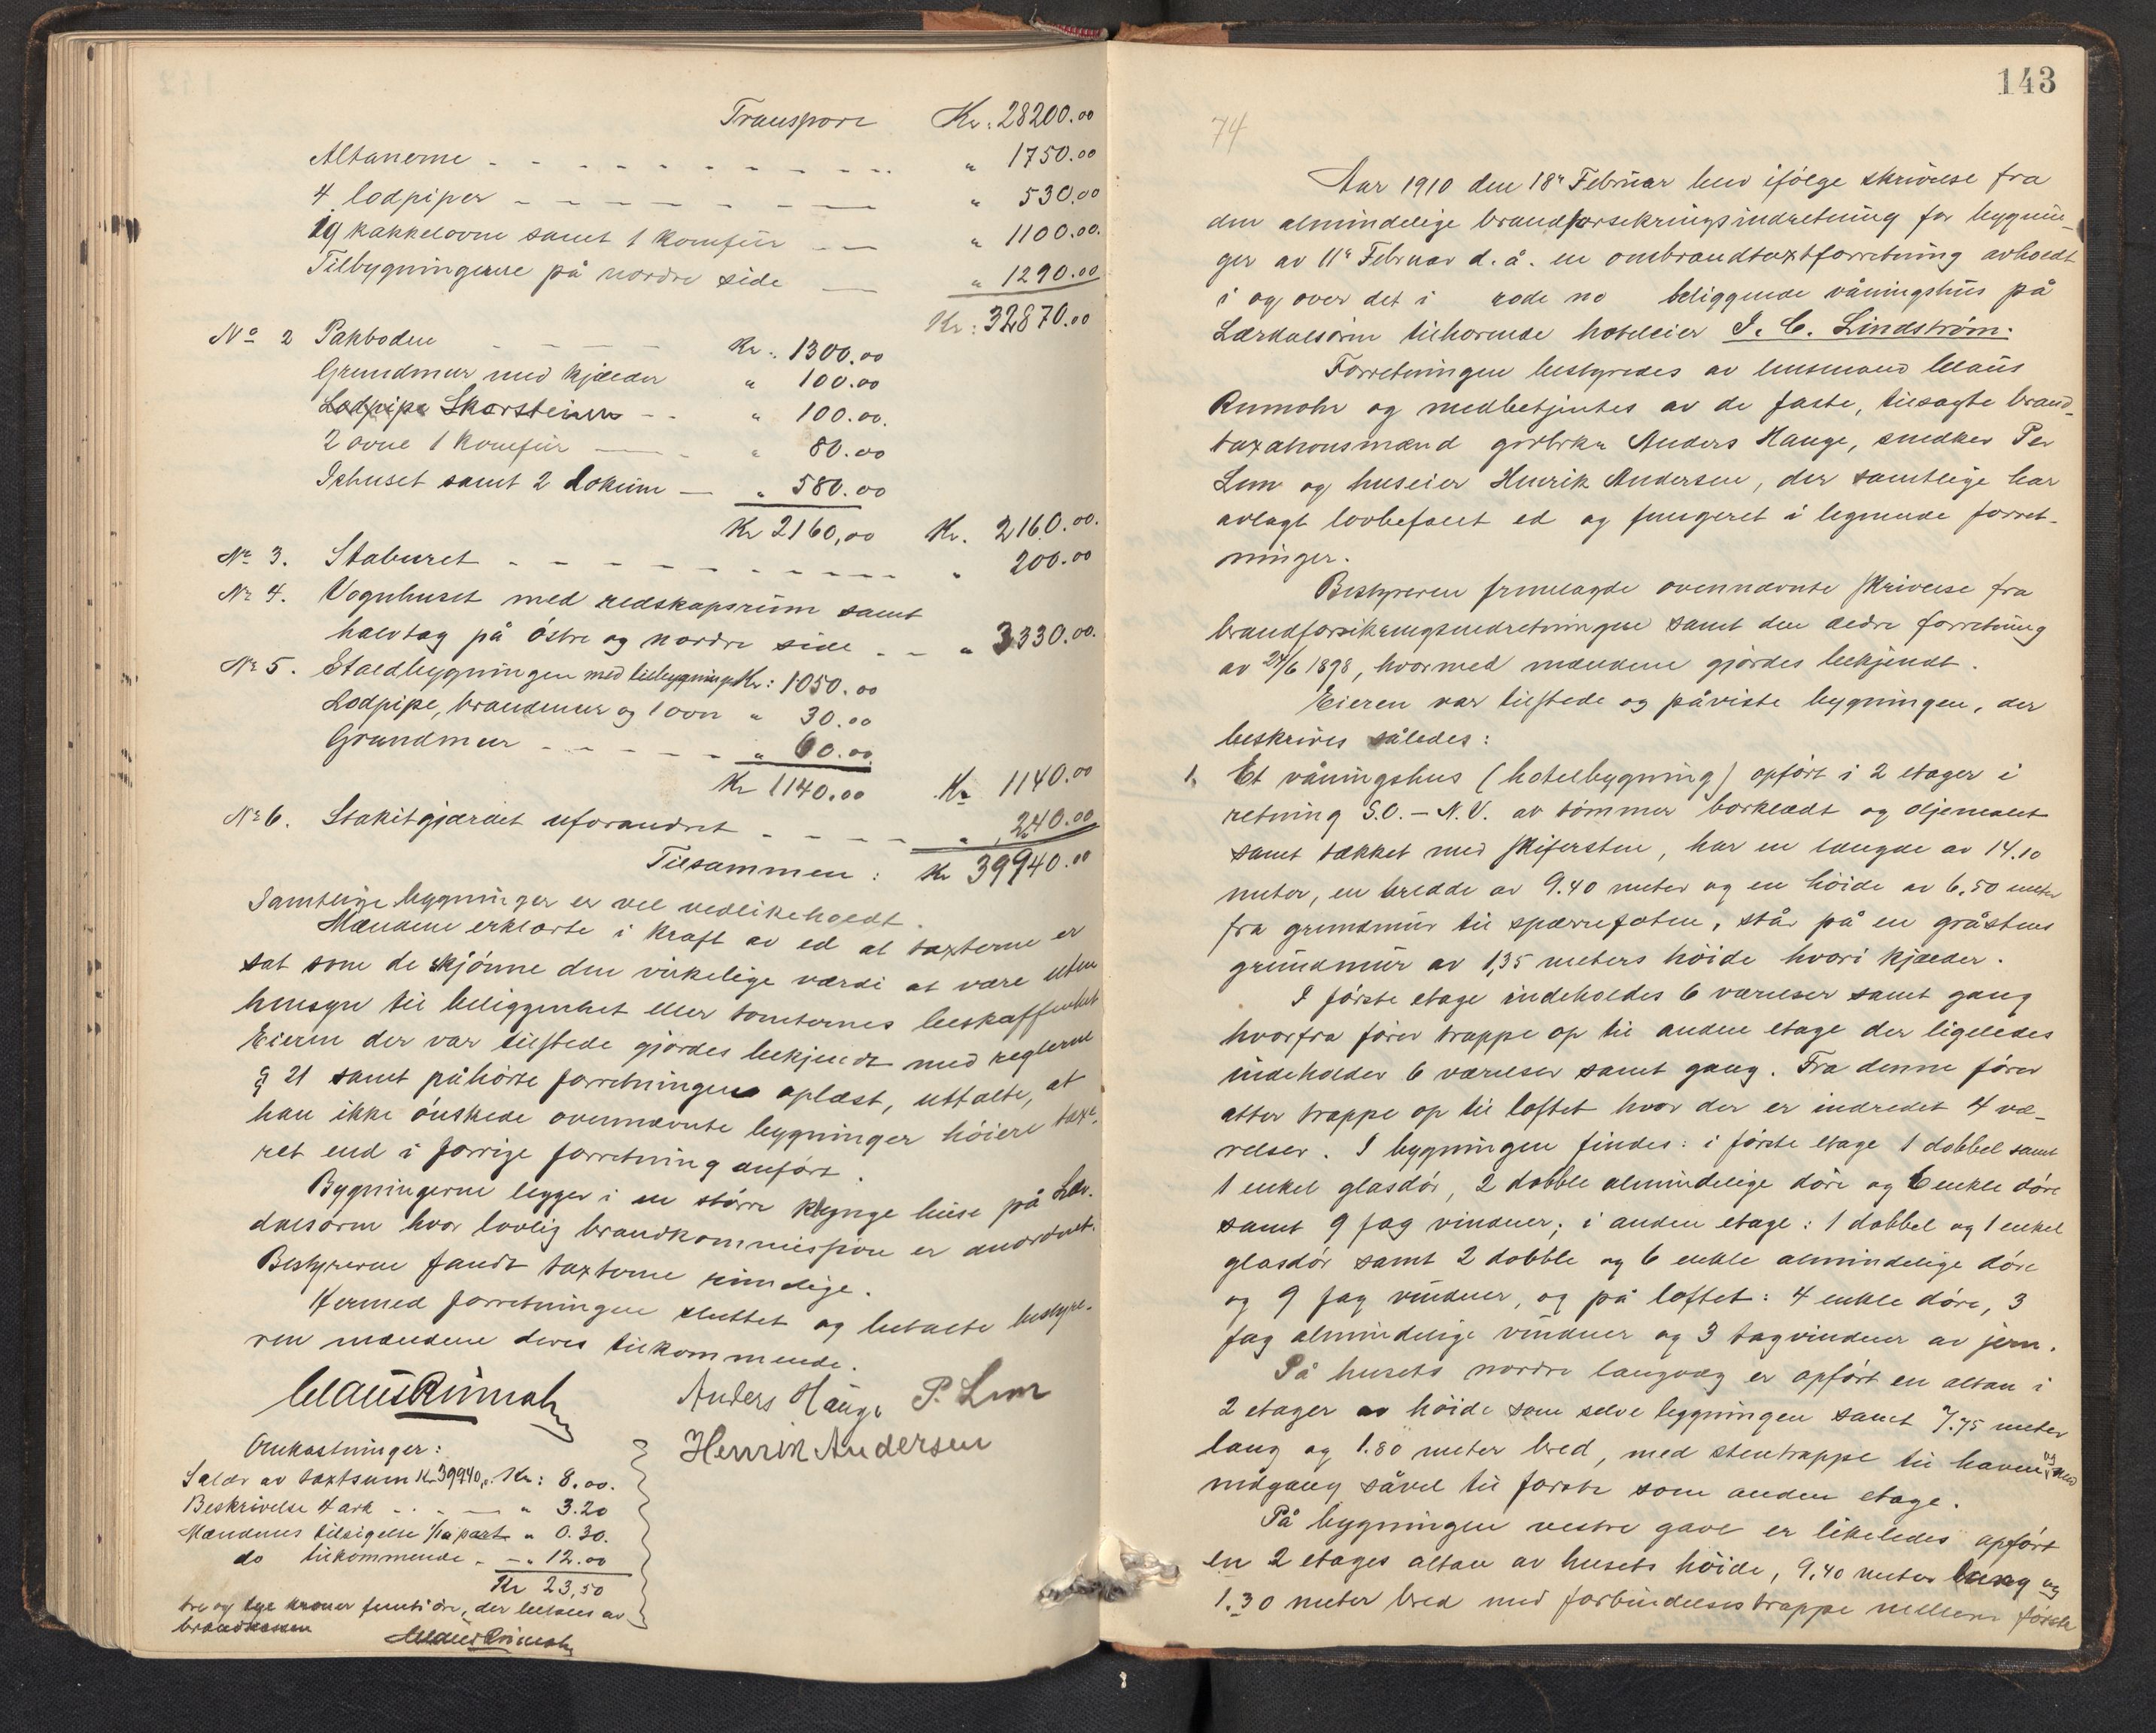 Transport Kr. 28200.00
Altanerne - - - - - - - - - - " 1750.00
4 lodpiper - - - - - - - - " 530.00
19 kakkelovne samt 1 komfür - - " 1100.00.
Tilbygningerne på nordre side - " 1290.00
Kr: 32870.00
No 2 Pakboden - - - - Kr. 1300.00
Grundmur med kjælder " 100.00
Lodpipe Skorsteinen - - " 100.00.
2 ovne 1 komfür - - " 80.00
Ishuset samt 2 lokum - " 580.00
Kr 2160,00 Kr. 2160.00.
Nr 3. Staburet - - - - - - - - - " 200.00
Nr 4. Vognhuset med redskapsrum samt
halvtag på østre og nordre side - - " 3330.00.
Nr 5. Staldbygningen med tilbygning Kr: 1050.00
Lodpipe, brandmur og 1 ovn " 30.00
Grundmur - - - - - - " 60.00.
Kr 1140.00 Kr 1140.00
Nr 6. Stakitgjærdet uforandret - - - - " 240.00
Tilsammen: Kr 39940.00
Samtlige bygninger er vel vedlikeholdt.
Mændene erklærte i kraft av ed at taxterne er
sat som de skjønne den virkelige værdi at være uten
hensyn til beliggenhet eller tomternes beskaffenhet
Eieren der var tilstede gjordes bekjendt med reglerne
§ 21 samt påhørte forretningens oplæst, uttalte, at
han ikke ønskede ovennævnte bygninger høiere taxe-
ret end i forrige forretning anført.
Bygningerne ligger i en større klynge huse på Lær-
dalsøren hvor lovlig brandkommission er anordnet.
Bestyreren fandt taxterne rimelige.
Hermed forretningen sluttet og betalte bestyre-
ren mændene deres tilkommende.
Claus Rumohr Anders Hauge P. Lem
Henrik Andersen
Omkostninger:
Salær av taxtsum Kr 39940,- Kr: 8.00.
Beskrivelse 4 ark - - - " 3.20
Mændenes tilsigelse 1/10 part " 0.30.
do tilkommende - - " 12.00
Kr 23,50
tre og tyve kroner femti øre, der betales av
brandkassen Claus Rumohr
143
74
Aar 1910 den 18r Februar blev ifølge skrivelse fra
den almindelige brandforsekringsindretning for bygnin-
ger av 11r Februar d. å. en ombrandtaxtforretning avholdt
i og over det i rode no beliggende våningshus på
Lærdalsøren tilhørende hoteleier J. C. Lindstrøm.
Forretningen bestyredes av lensmand Claus
Rumohr og medbetjentes av de faste, tilsagte brand-
taxationsmænd gårbrkr Anders Hauge, snedker Per
Lem og huseier Henrik Andersen, der samtlige har
avlagt lovbefalet ed og fungeret i lignende forret-
ninger.
Bestyreren fremlagde ovennævnte skrivelse fra
brandforsikringsindretningen samt den ældre forretning
av 24/6 1898, hvormed mændene gjordes bekjendt.
Eieren var tilstede og påviste bygningen, der
beskrives således:
1. Et våningshus (hotelbygning) opført i 2 etager i
retning S.O. - N.V. av tømmer bordklædt og oljemalet
samt tækket med skifersten, har en længde av 14.10
meter, en bredde av 9.40 meter og en høide av 6.50 meter
fra grundmur til spærrefoten, står på en gråstens
grundmur av 1,35 meters høide hvori kjælder.
I første etage indeholdes 6 værelser samt gang
hvorfra fører trappe op til anden etage der ligeledes
indeholder 6 værelser samt gang. Fra denne fører
atter trappe op til loftet hvor der er indredet 4 væ-
relser. I bygningen findes: i første etage 1 dobbel samt
1 enkel glasdør, 2 dobble almindelige døre og 6 enkle døre
samt 9 fag vinduer; i anden etage: 1 dobbel og 1 enkel
glasdør samt 2 dobble og 6 enkle almindelige døre
og 9 fag vinduer, og på loftet: 4 enkle døre, 3
fag almindelige vinduer og 3 tagvinduer av jern.
På husets nordre langvæg er opført en altan i
2 etager av høide som selve bygningen samt 7.75 meter
lang og 1.80 meter bred, med stentrappe til haven og med
indgang såvel til første som anden etage.
På bygningen vestre gavl er likeledes opført
en 2 etages altan av husets høide, 9.40 meter lang og
1.30 meter bred med forbindelsestrappe mellem første